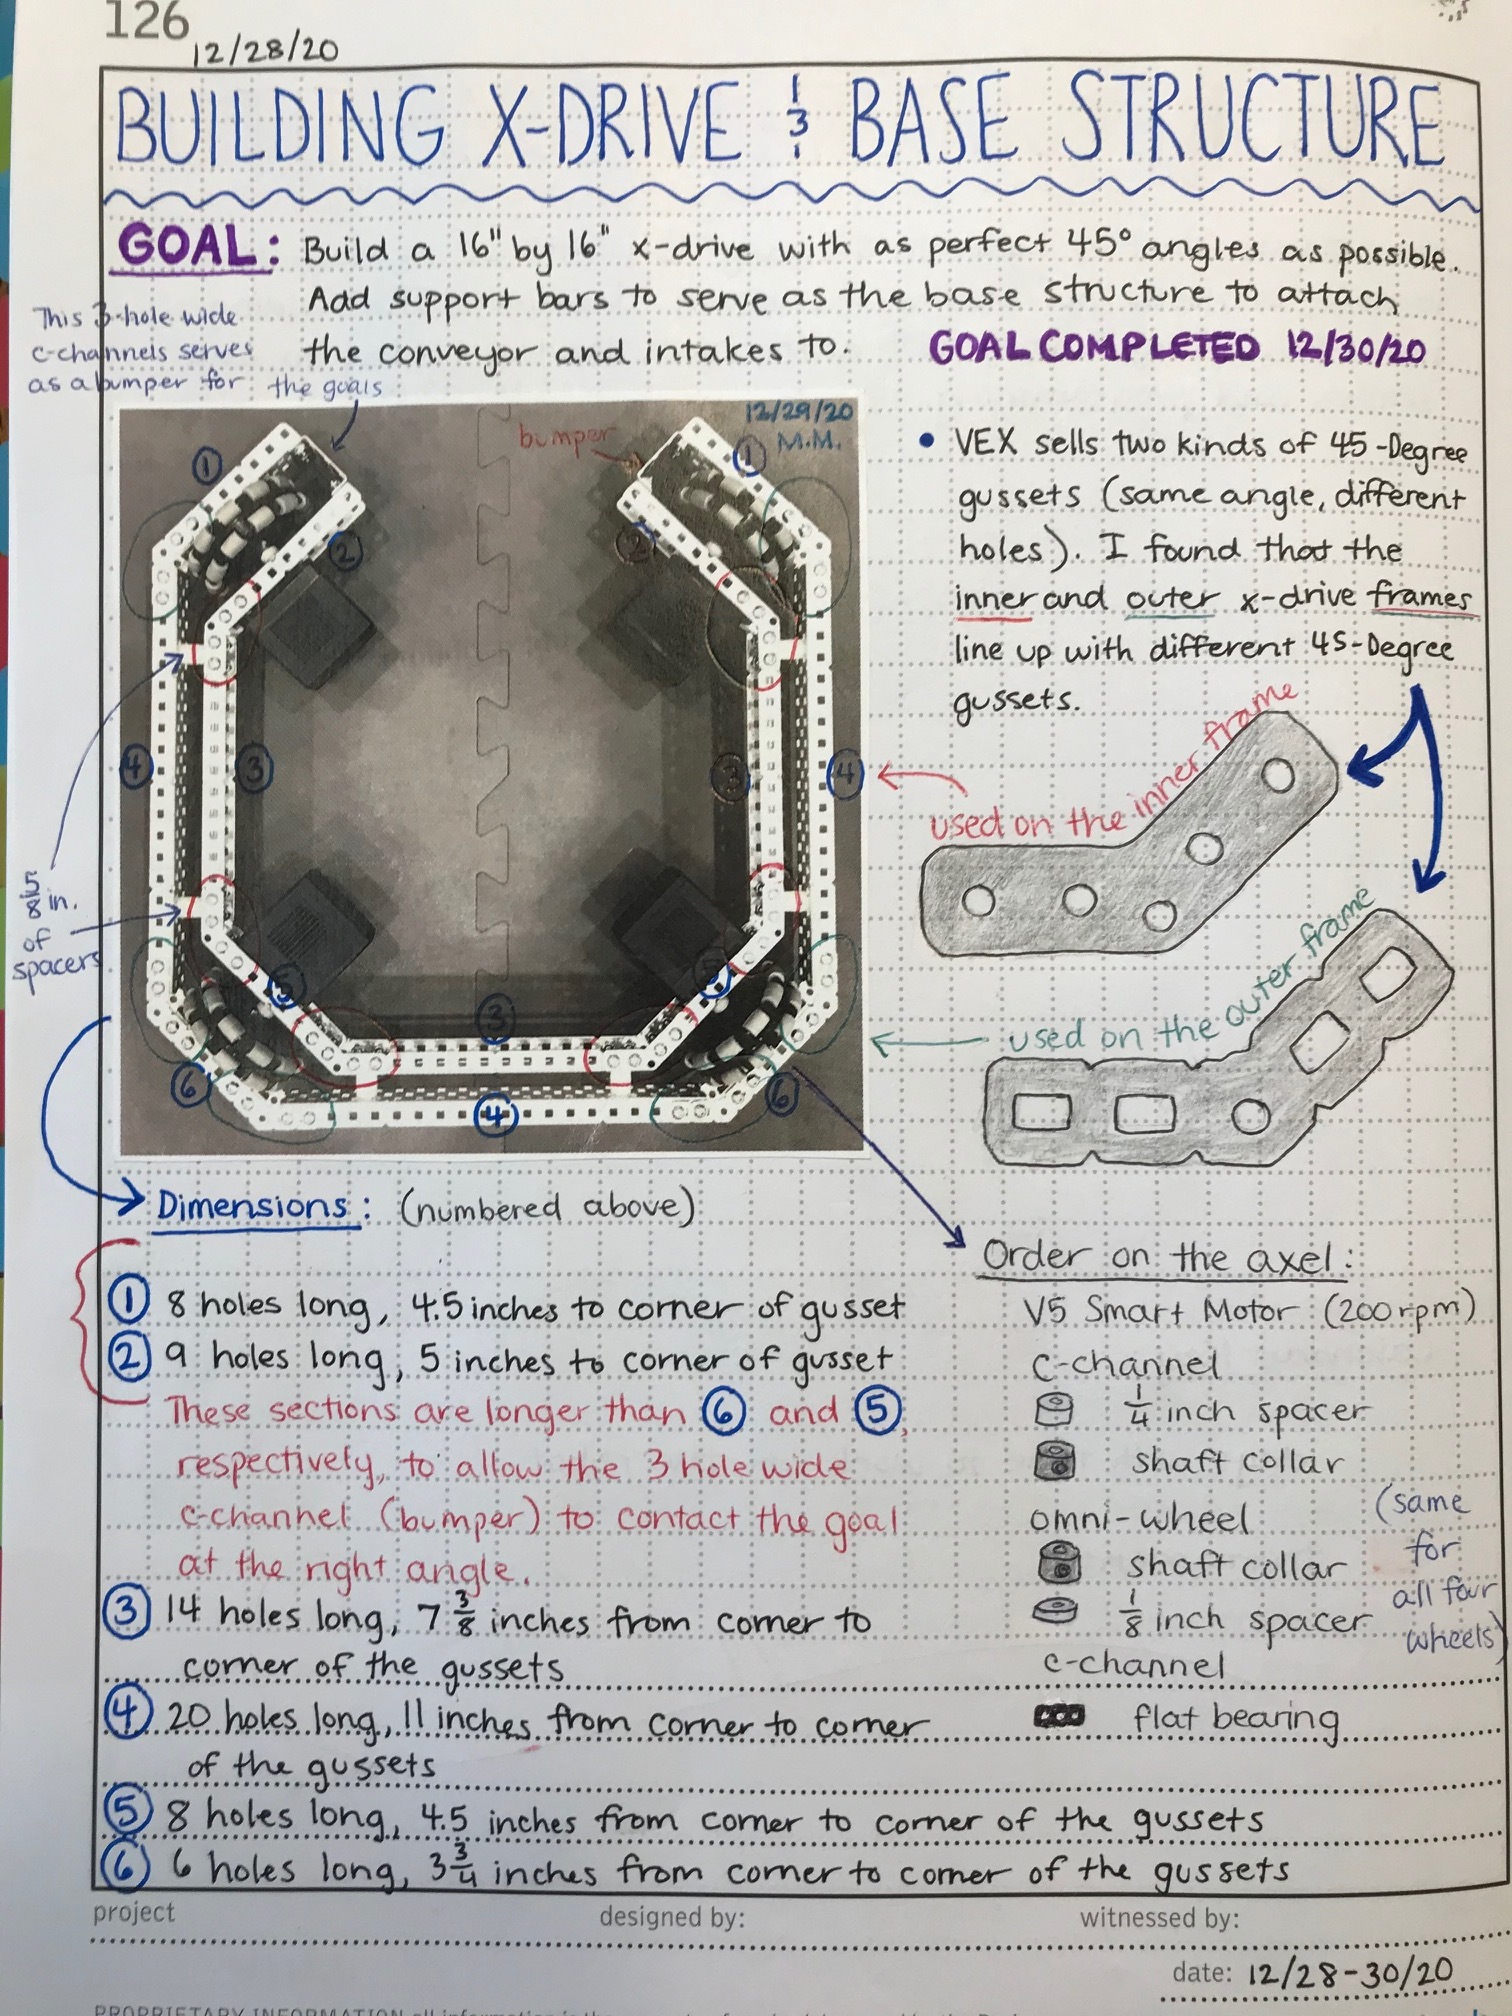 126
12/28/20
BUILDING X-DRIVE & BASE STRUCTURE
GOAL: Build a 16" by 16" x-drive with as perfect 45° angles as possible.
Add support bars to serve as the base structure to attach
the conveyor and intakes to. GOAL COMPLETED 12/30/20
This 3-hole wide
c-channels serves
as a bumper for the goals
12/29/20
M.M.
bumper
1
1
2
2
3
3
4
4
5
5
3
6
6
4
5/8 in.
of
spacers
• VEX sells two kinds of 45-Degree
gussets (same angle, different
holes). I found that the
inner and outer x-drive frames
line up with different 45-Degree
gussets.
used on the inner frame
used on the outer frame
Dimensions: (numbered above)
1 8 holes long, 4.5 inches to corner of gusset
2 9 holes long, 5 inches to corner of gusset
These sections are longer than 6 and 5,
respectively, to allow the 3 hole wide
c-channel (bumper) to contact the goal
at the right angle.
3 14 holes long, 7 3/8 inches from corner to
corner of the gussets
4 20 holes long, 11 inches from corner to corner
of the gussets
5 8 holes long, 4.5 inches from corner to corner of the gussets
6 6 holes long, 3 3/4 inches from corner to corner of the gussets
Order on the axel:
V5 Smart Motor (200rpm)
c-channel
1/4 inch spacer
shaft collar
omni-wheel
shaft collar
1/8 inch spacer
c-channel
flat bearing
(same
for
all four
wheels)
project
designed by:
witnessed by:
date: 12/28-30/20
PROPRIETARY INFORMATION